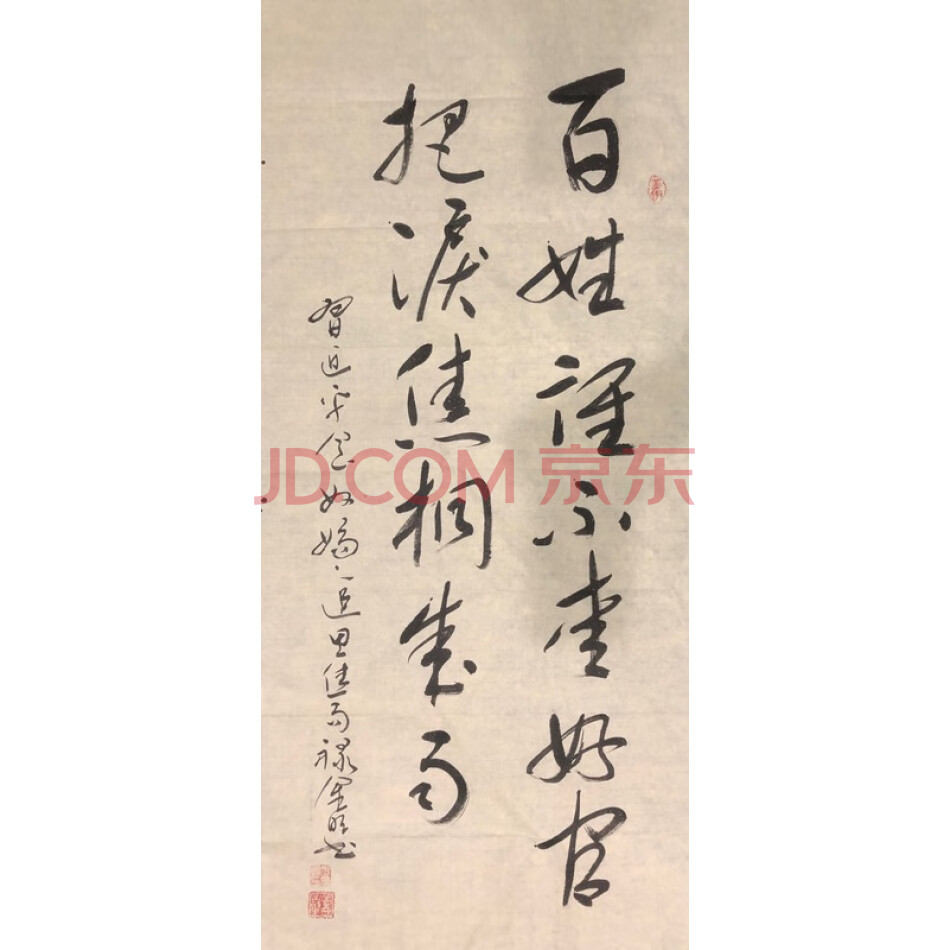 百姓谁不爱好官
把泪焦桐成雨
习近平念奴娇追思焦
JD.COM 京东